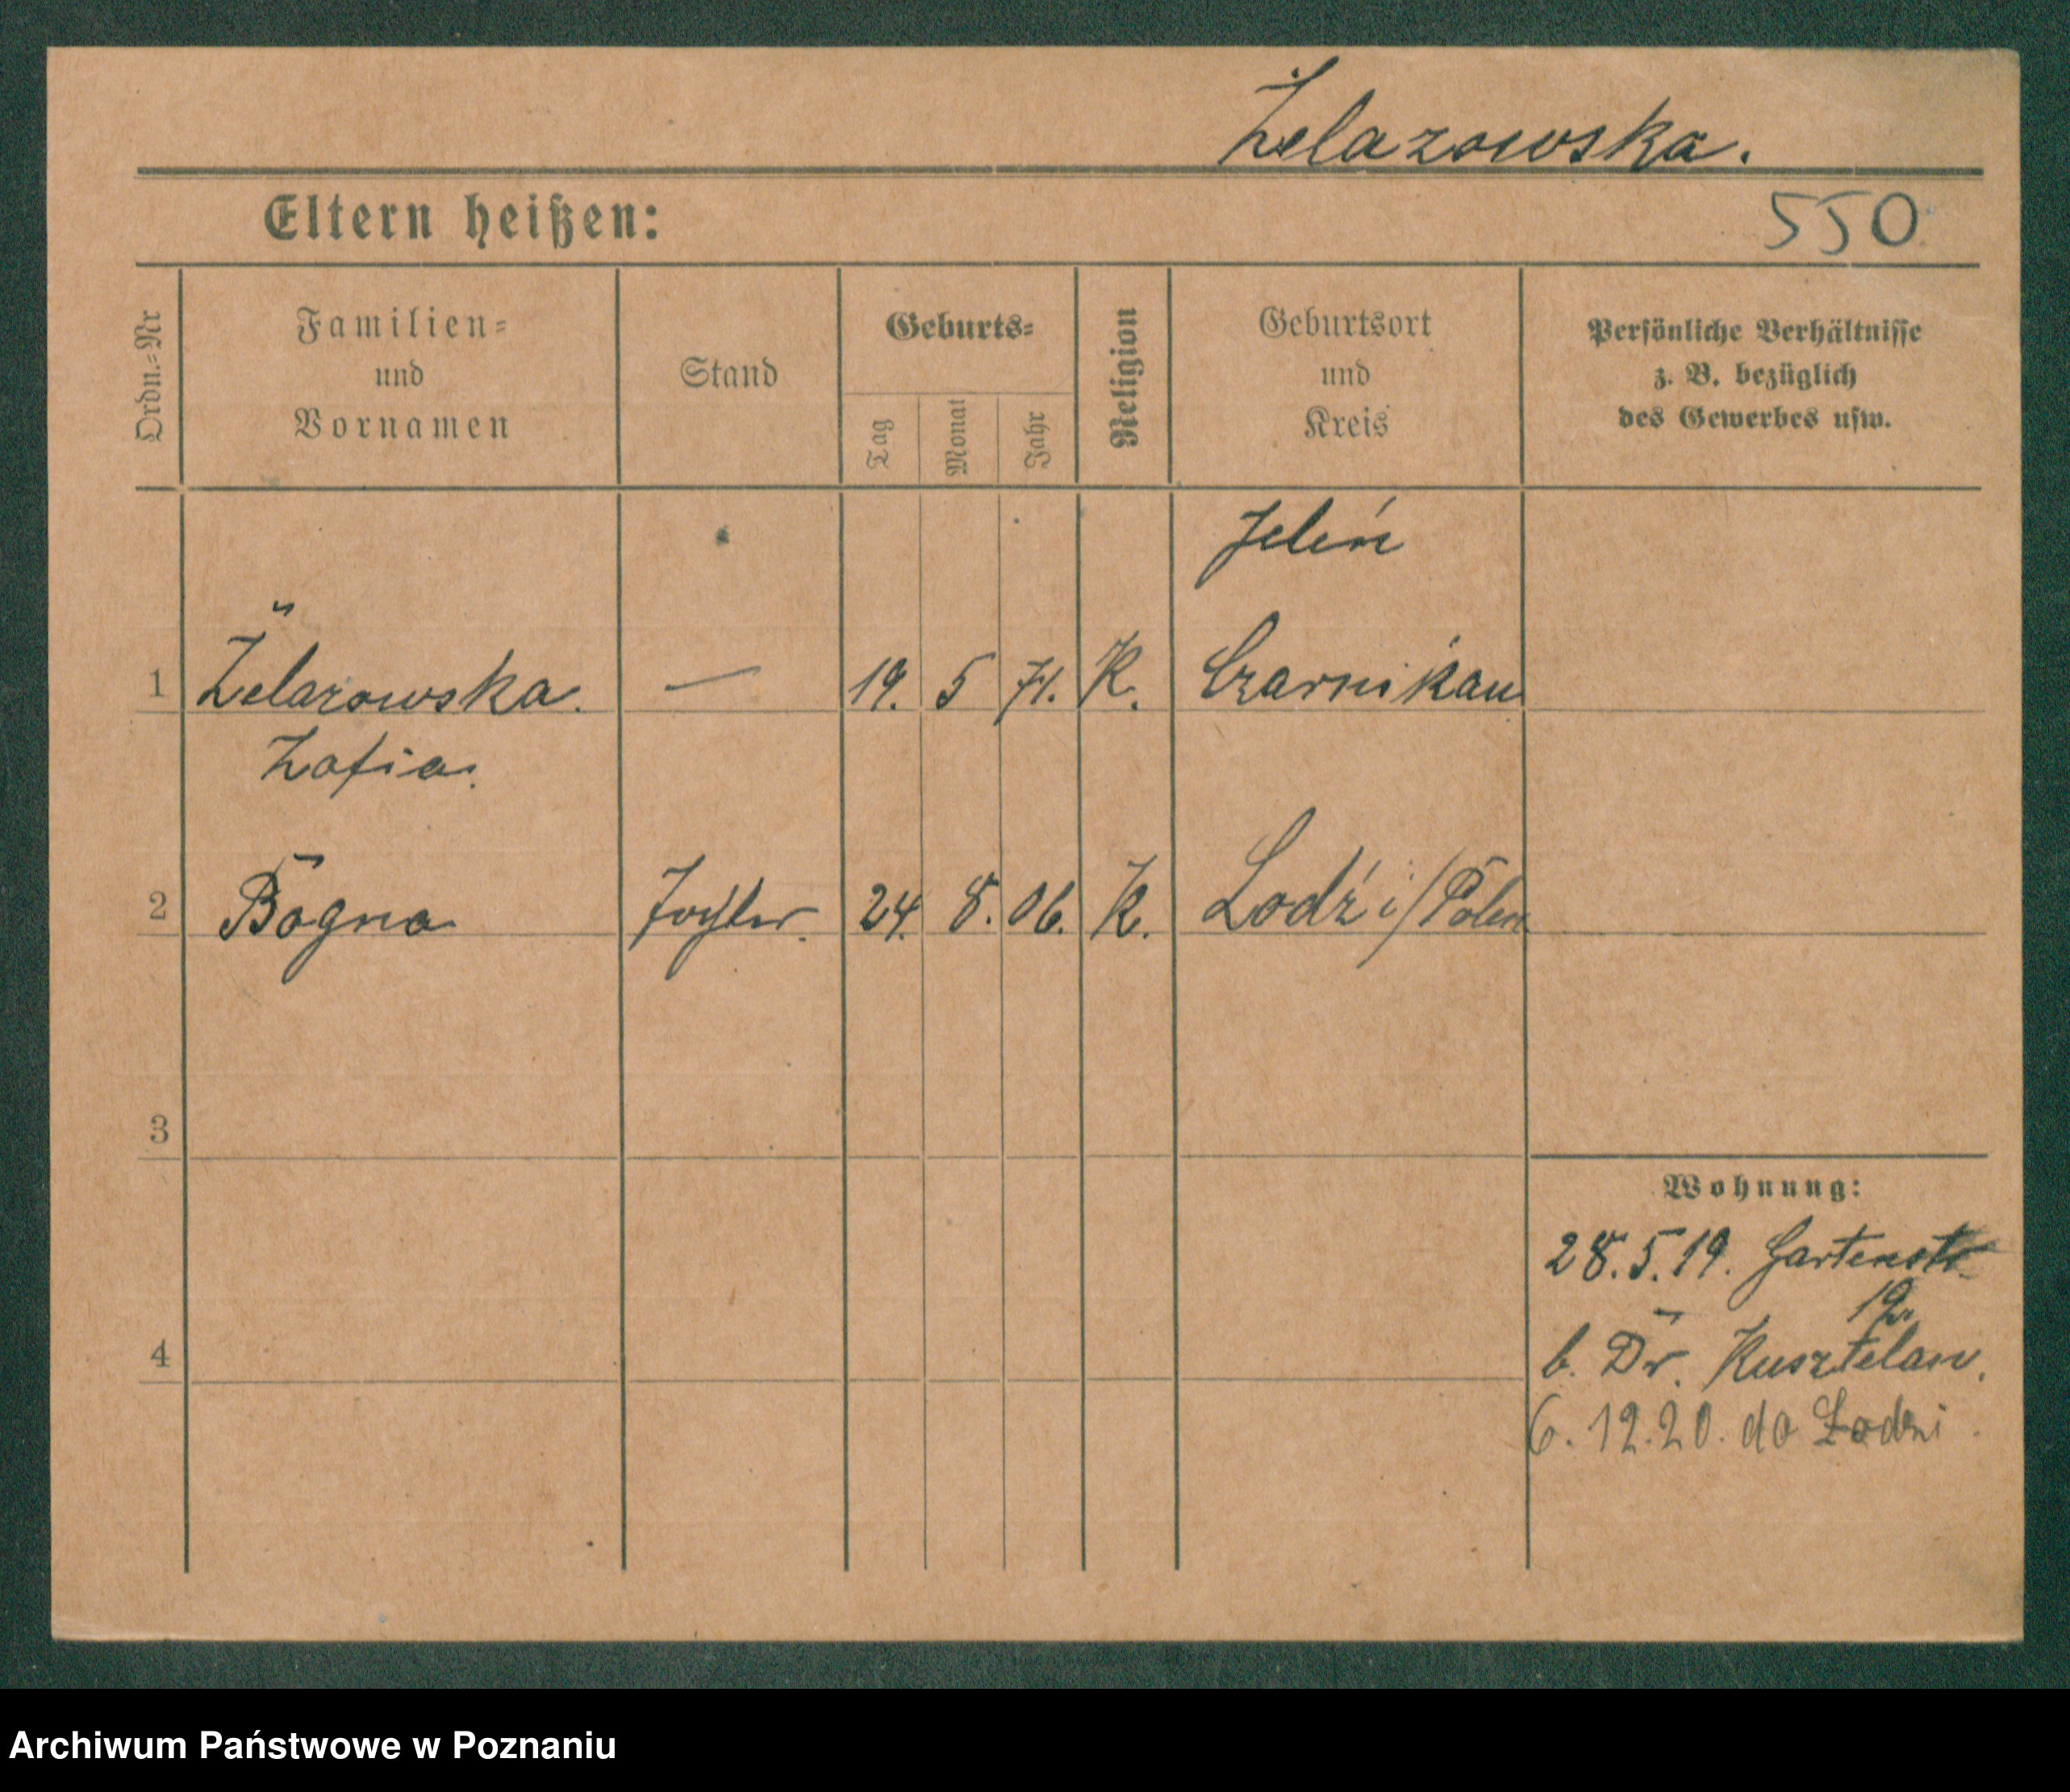 Żelazowska.
Eltern heißen:
550
Ordn.=Nr
Familien=
und
Vornamen
Stand
Geburts=
Tag
Monat
Jahr
Religion
Geburtsort
und
Kreis
Persönliche Verhältnisse
z. B. bezüglich
des Gewerbes usw.
Jeleń
1 Żelazowska. — 19. 5 71. K. Czarnikau
Zofia.
2 Bogna Tochter. 24. 8. 06. K. Lodź i/Polen
3
Wohnung:
28.5.19. Gartenstr.
19
4
b. Dr. Kusztelan.
6.12.20. do Łodzi
Archiwum Państwowe w Poznaniu